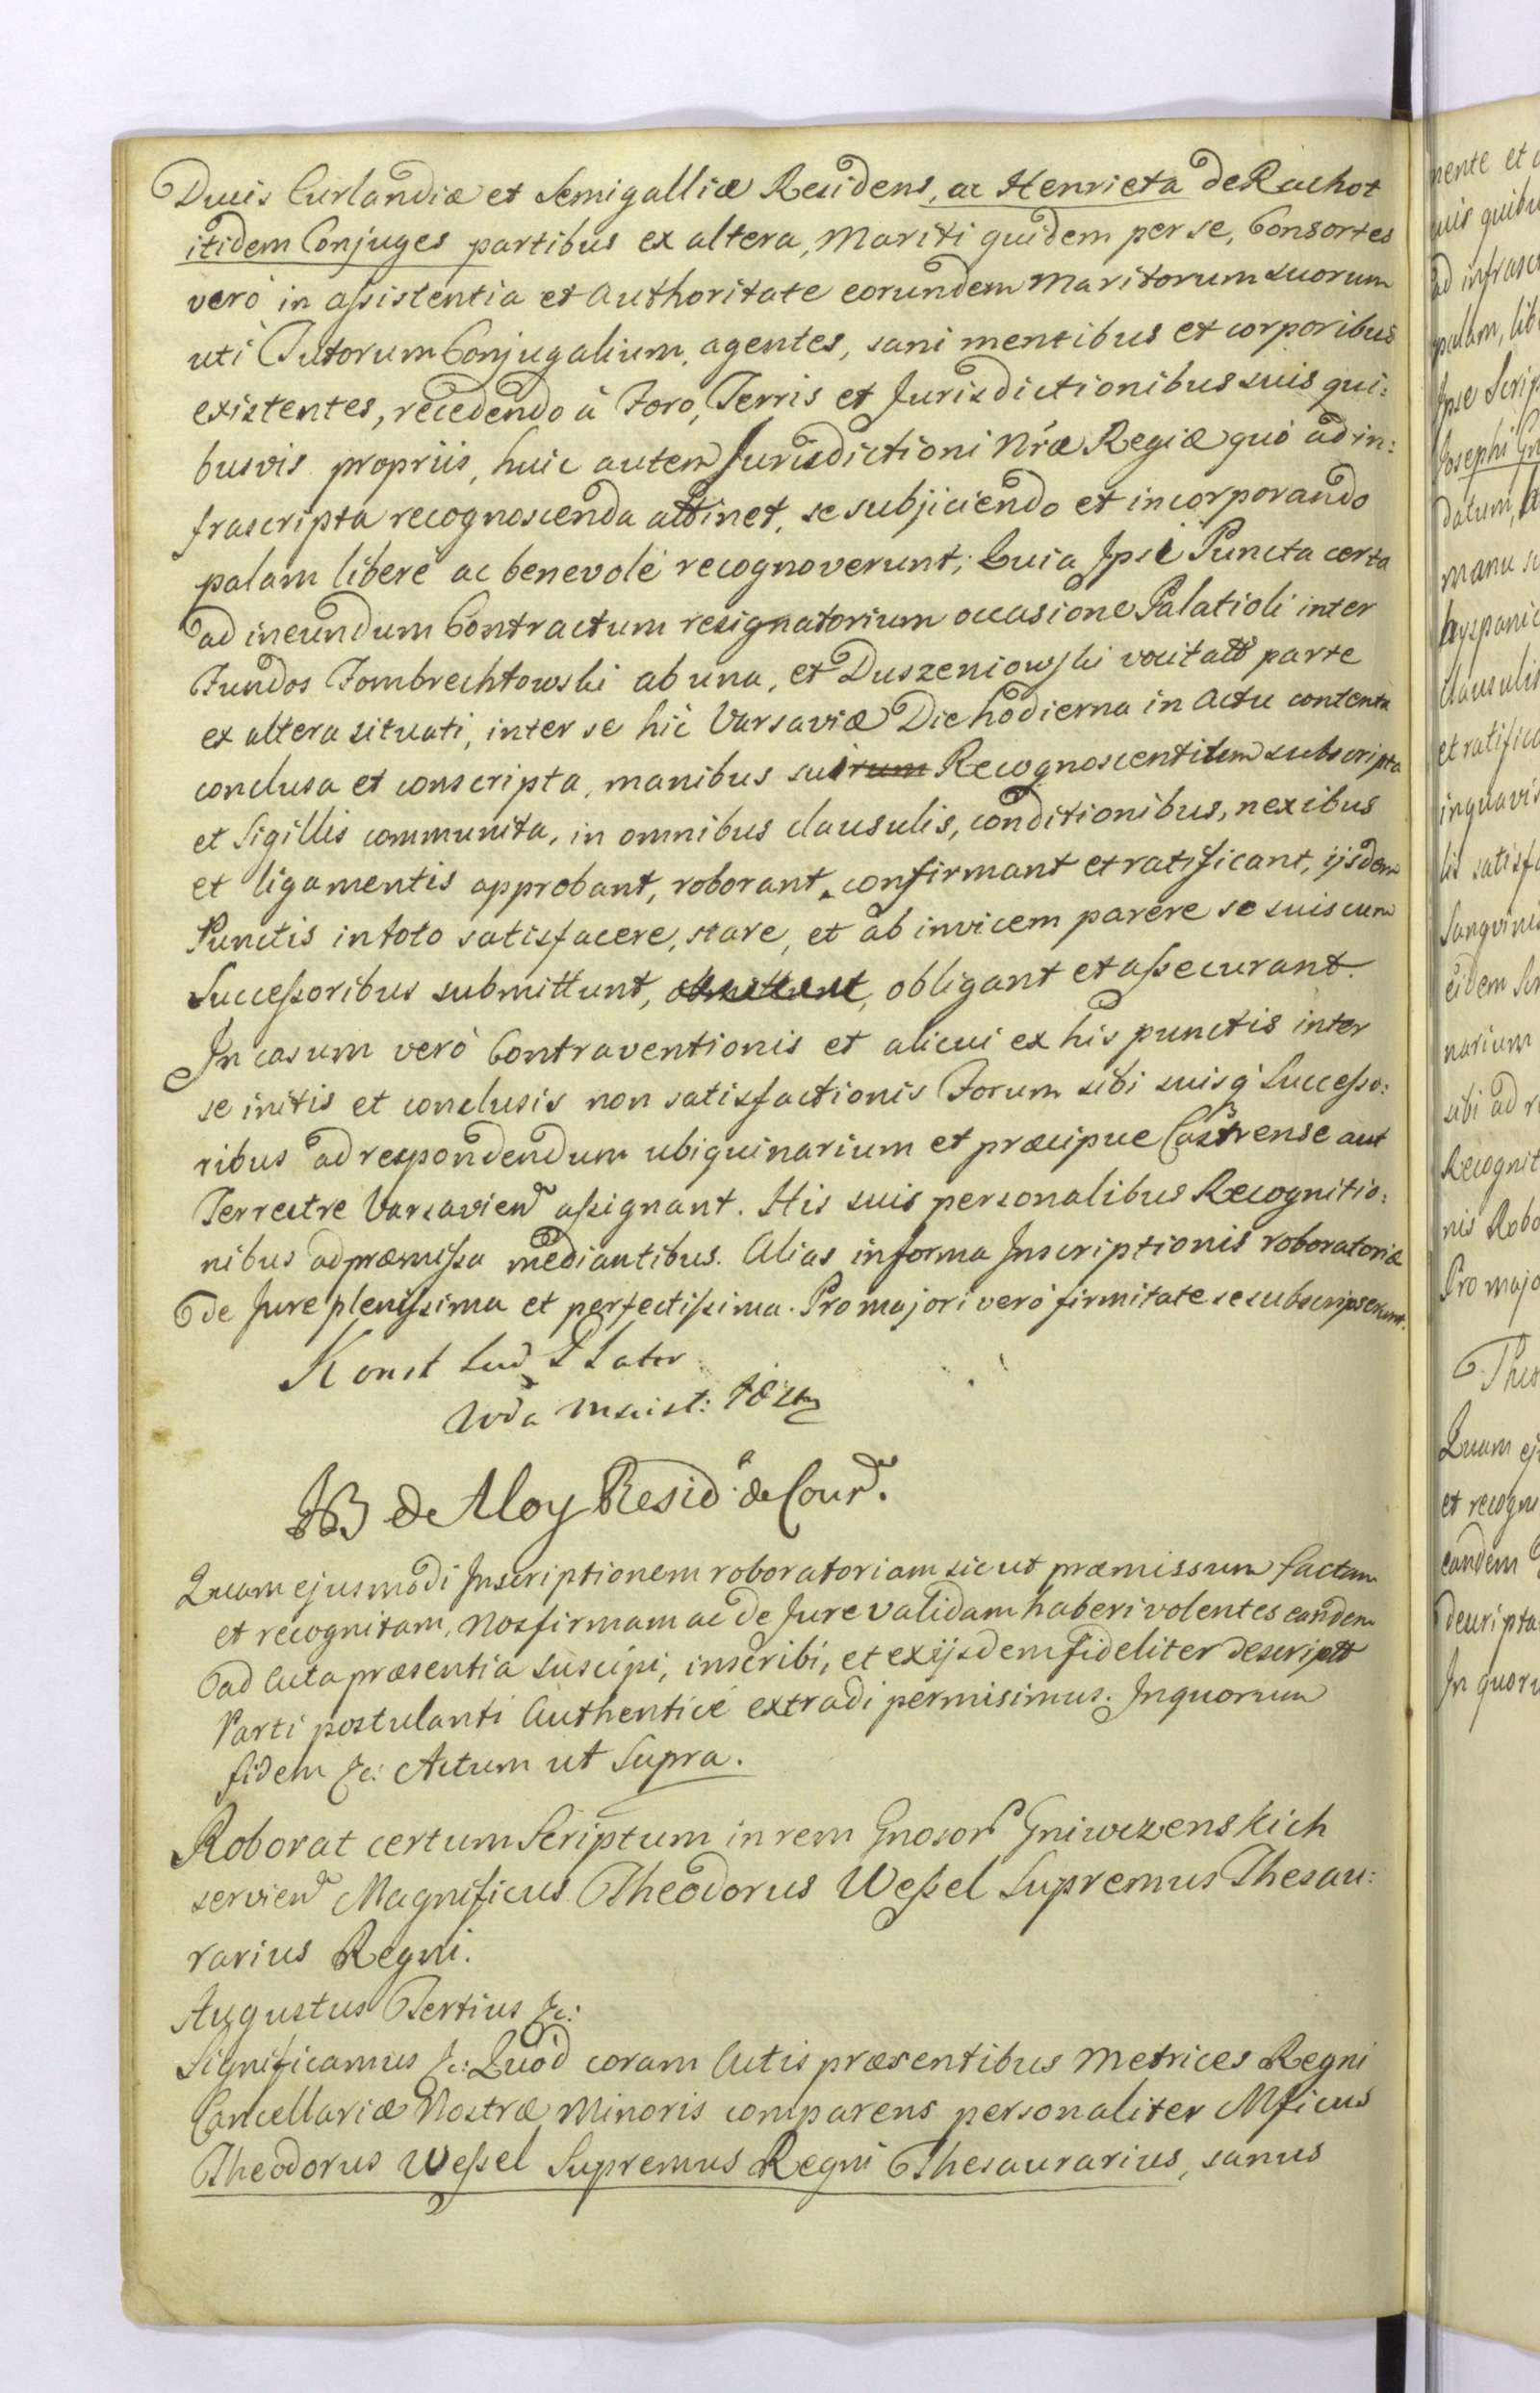 Ducis Curlandiæ et Semigalliæ Residens, ac Henrieta de Rachot
itidem Conjuges partibus ex altera, Mariti quidem per se, Consortes
verò in aſsistentia et Authoritate eorundem Maritorum suorum
uti Tutorum Conjugalium, agentes, sani mentibus et corporibus
existentes, recedendo à Foro, Terris et Jurisdictionibus suis qui:
busvis propriis, huic autem Jurisdictioni Nræ Regiæ quò ad in:
frascripta recognoscenda attinet, se subjiciendo et incorporando
palam liberè ac benevolè recognoverunt; Quia Ipsi Puncta certa
ad ineundum Contractum resignatorium occasione Palatioli inter
Fundos Fombrechtowski ab una, et Duszeniowski vocitatt parte
ex altera situati, inter se hic Varsaviæ Die hodierna in Actu contenta
conclusa et conscripta, manibus suirum Recognoscentium subscripta
et Sigillis communita, in omnibus clausulis, conditionibus, nexibus
et ligamentis approbant, roborant, confirmant et ratificant, ijsdem
Punctis in toto satisfacere, stare, et ab invicem parere se suis cum
Succeſsoribus submittunt, obligant et aſsecurant.
In casum verò Contraventionis et alicui ex his punctis inter
se initis et conclusis non satisfactionis Forum sibi suisq Succeſso:
ribus ad respondendum ubiquinarium et præcipue Castrense aut
Terrestre Varsavien aſsignant. His suis personalibus Recognitio:
nibus ad præmiſsa mediantibus. Alias in forma Inscriptionis roboratoriæ
de Jure pleniſsima et perfectiſsima. Pro majori verò firmitate se subscripserunt.
Konst Lud Plater
Wda Mscist:
JB de Aloy Resid: de Cour.
Quam ejusmodi Inscriptionem roboratoriam sic ut præmissum factam
et recognitam, Nos firmam ac de Jure validam haberi volentes eandem
ad Acta præsentia suscipi, inscribi, et ex ijsdem fideliter descriptt
Parti postulanti Authenticè extradi permisimus. In quorum
fidem &c: Actum ut Supra.
Roborat certum Scriptum in rem Gnosor Gniwczenskich
servien Magnificus Theodorus Weſsel Supremus Thesau:
rarius Regni.
Augustus Tertius &c:
Significamus &c: Quod coram Actis præsentibus Metrices Regni
Cancellariæ Nostræ Minoris comparens personaliter Mficus
Theodorus Weſsel Supremus Regni Thesaurarius, sanus